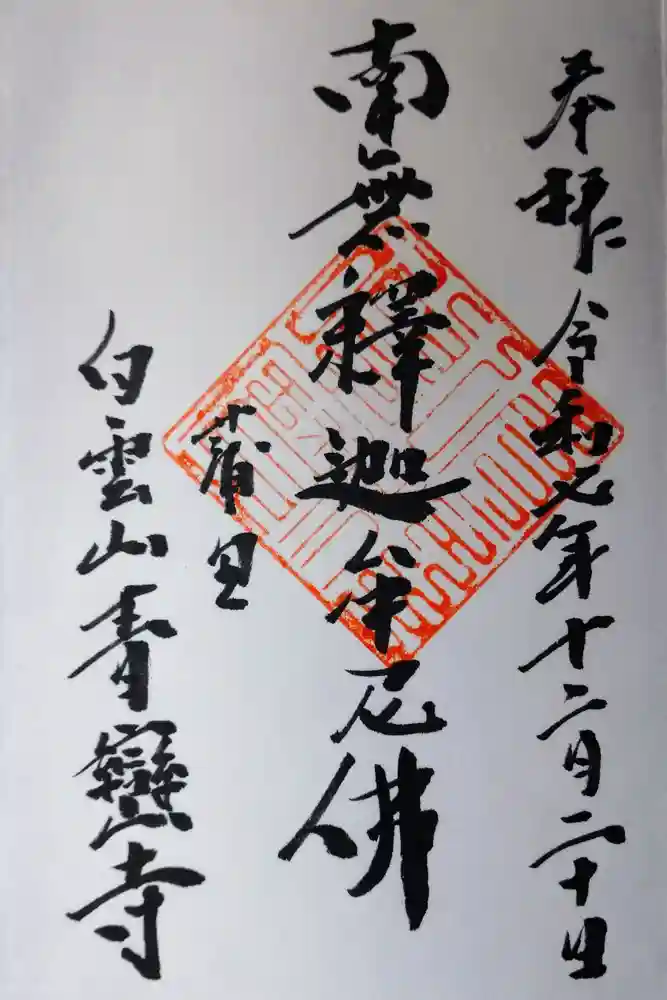 奉拝 令和元年十二月二十日
南無釋迦牟尼佛
蒲
白雲山青巒寺